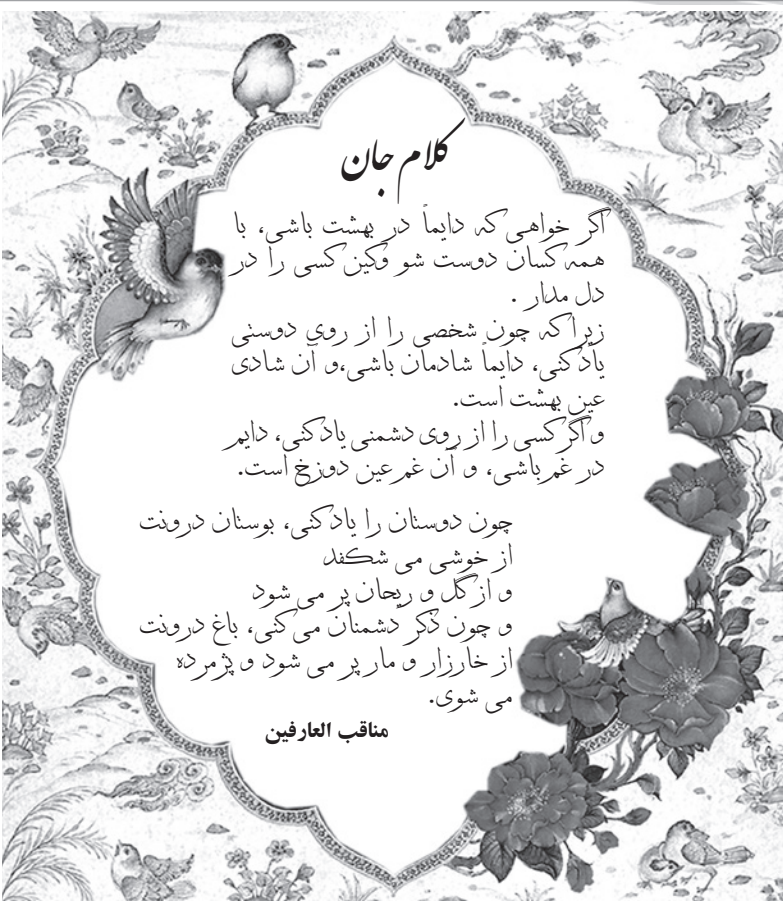 کلام جان
اگر خواهی که دایماً در بهشت باشی، با
همه کسان دوست شو وکین کسی را در
دل مدار .
زیرا که چون شخصی را از روی دوستی
یاد کنی، دایماً شادمان باشی،و آن شادی
عین بهشت است.
و اگر کسی را از روی دشمنی یاد کنی، دایم
در غم باشی، و آن غم عین دوزخ است.
چون دوستان را یاد کنی، بوستان درونت
از خوشی می شکفد
و از گل و ریحان پر می شود
و چون ذکر دشمنان می کنی، باغ درونت
از خارزار و مار پر می شود و پژمرده
می شوی.
مناقب العارفین